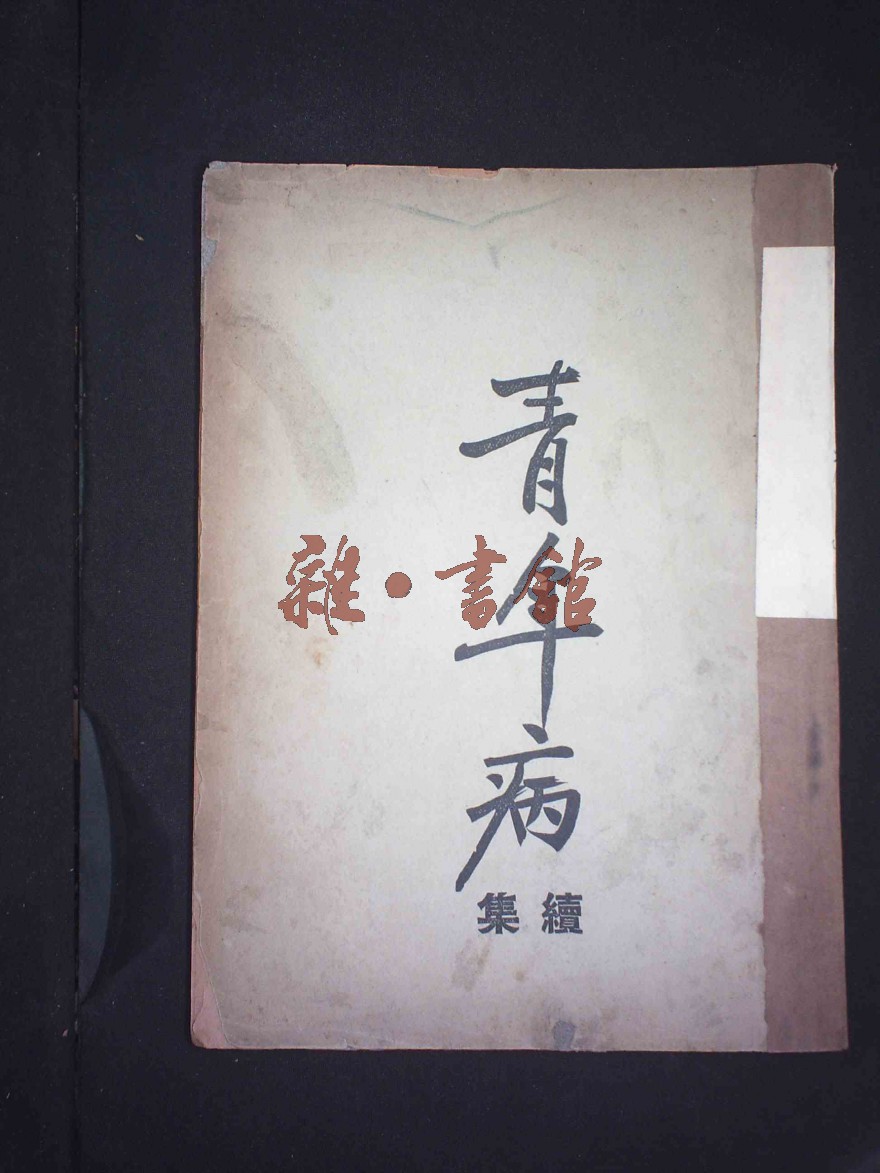 青年病
續集
雜·書館